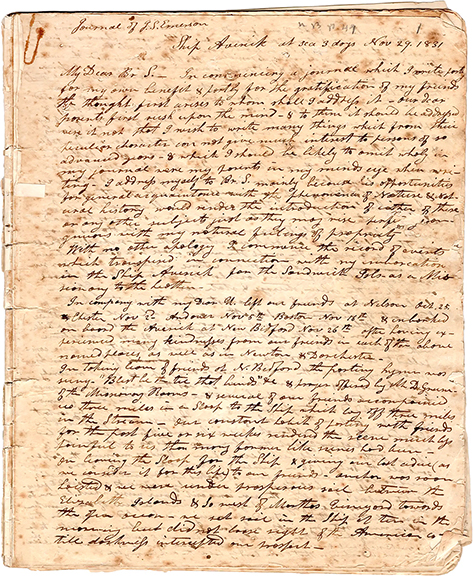 Journal of J.S. Emerson
Ship Averick at sea 3 days Nov 29. 1831
My Dear Br S. — In commencing a journal which I write partly
for my own benefit & partly for the gratification of my friends
the thought first arises to whom shall I address it – our dear
parents first rush upon the mind – & to them it should be addressed
were it not that I wish to write many things which from their
peculiar character can not give much interest to persons of so
advanced years – & which I should be likely to omit wholly in
my journal were my parents in my minds eye when wri-
ting – I address myself to Br S. mainly because his opportunities
for general acquaintance with the Phenomena of Nature & Nat-
ural history would render the introduction of either of these
or any other subject just as they may rise
with my natural feelings of propriety —
With no other apology I commence the record of events
which transpired in connection with my embarcation
in the Ship Averick for the Sandwich Isles as a Miss
ionary to the heathen.
In company with my Dear U. left our friends at Nelson Oct. 25
& Chester Nov 2. Andover Nov 5th Boston Nov 18th & embarked
on board the Averick at New Bedford Nov 26th after having ex-
perienced many kindnesses from our friends in each of the above
named places, as well as in Newton & Dorchester.
In taking leave of friends at N. Bedford the parting hymn was
sung. Blest be the tie that binds &c & prayer offered by Mr. D. Green
of the Missionary Rooms – & several of our friends accompanied
us three miles in a Sloop to the Ship which lay off three miles
in the Stream – Our constant habit of parting with friends
for the past five or six weeks rendered the scene much less
painful to us than many former like scenes had been –
On leaving the Sloop for the Ship & giving our last adieu, as
we consider it for this life to our friends, anchor was soon
hoisted & we were under prosperous sail between the
Elizabeth Islands & So. west of Marthas Vineyard towards
the open ocean – we set sail in the Ship at ten in the
morning but did not loose sight of the American co
till darkness intercepted our prospect –